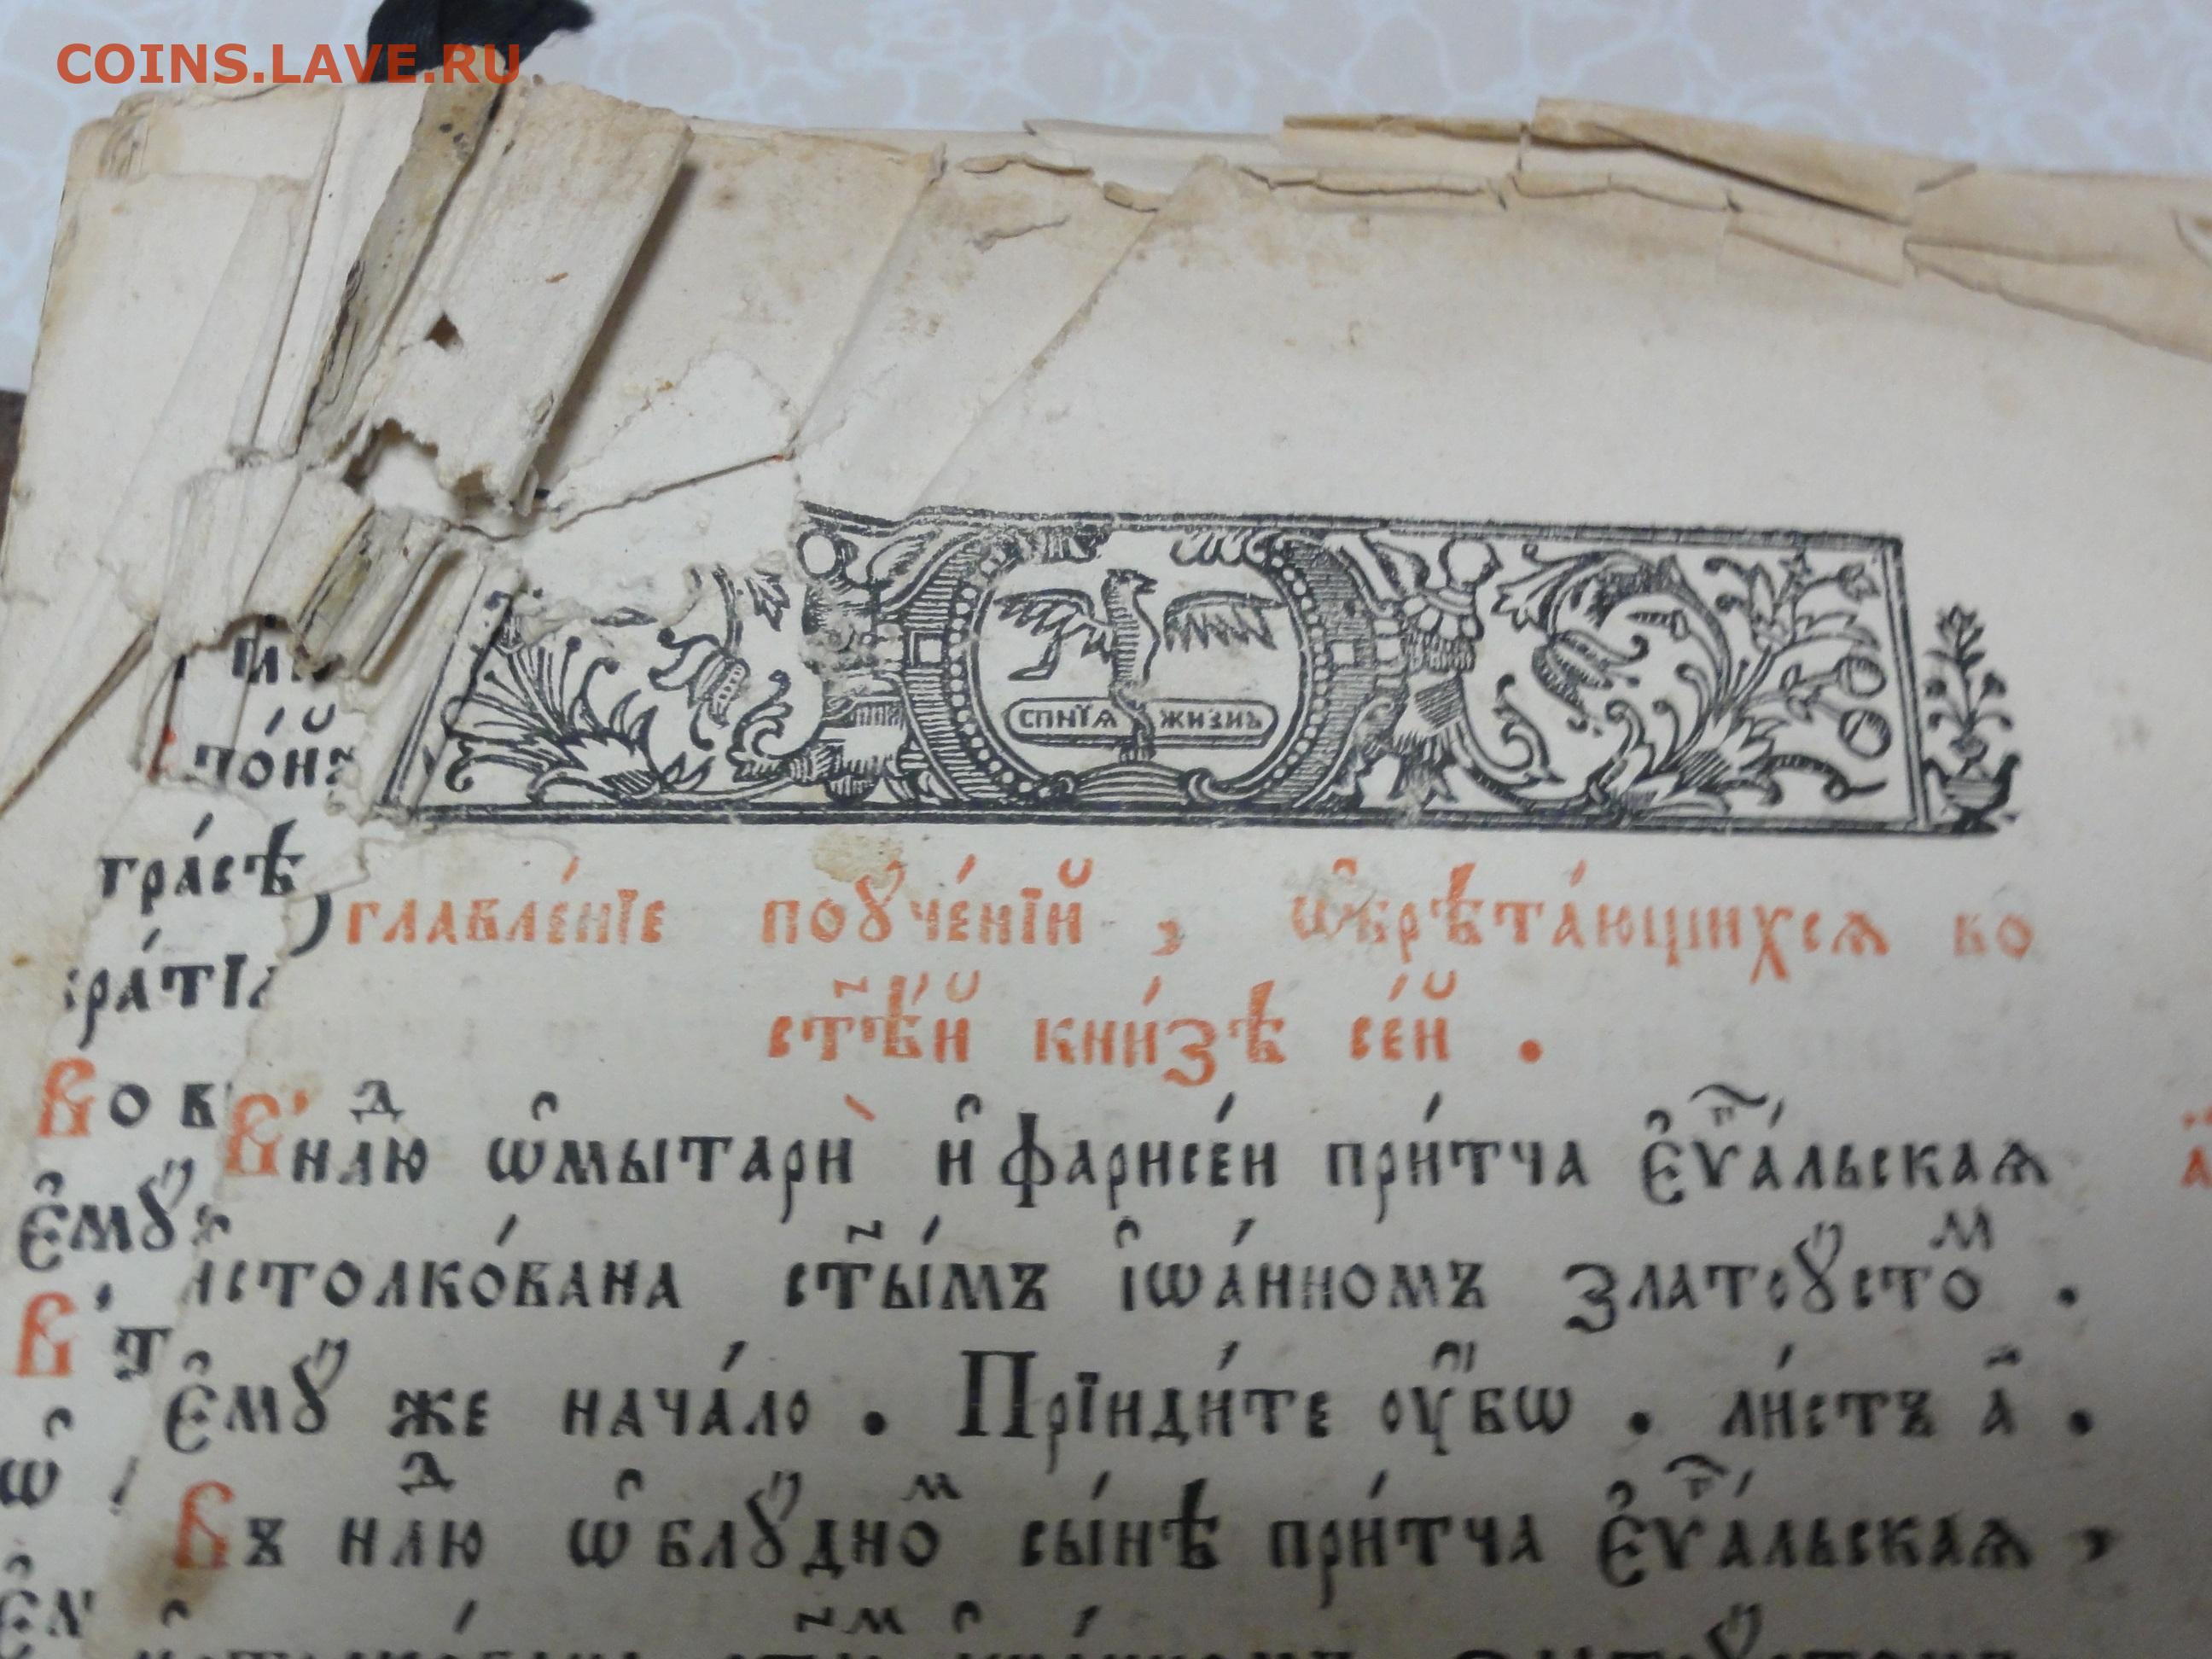 COINS.LAVE.RU
спнїѧ жизнь
главле́нїе поꙋче́нїй , ѡ҆брѣта́ющихсѧ во
ст҃ѣ́й кни́зѣ се́й .
В' нⷣлю ѡ҆мытарѝ и҆ фарисе́и при́тча є҆ѵⷢ҇а́льскаѧ
истолко́вана ст҃ы́мъ і҆ѡа́нномъ златоꙋстоⷨ .
є҆мꙋ́ же нача́ло . Прїиди́те ᲂу҆́бѡ . ли́стъ а҃ .
Въ нⷣлю ѡ҆ блꙋ́дноⷨ сы́нѣ при́тча є҆ѵⷢ҇а́льскаѧ ,
тра́сѣ
Во
є҆мꙋ́
В'
ѡ҆